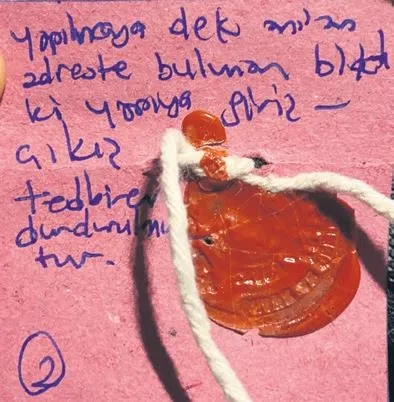 yapılıncaya dek anılan
adreste bulunan blok
ki yapıya giriş —
çıkış
tedbiren
durdurulmuş
tur.
2